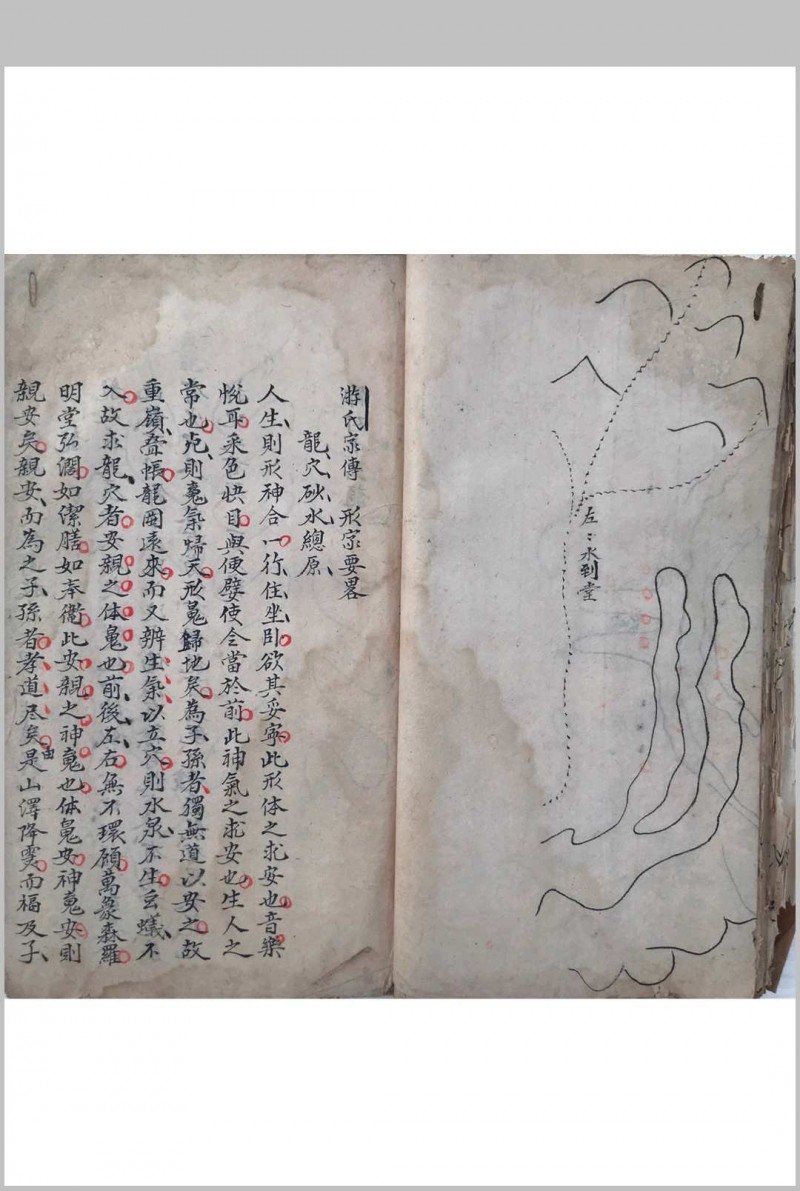 左〻水到堂
游氏家傳 形家要畧
龍穴砂水總原
人生則形神合一行住坐卧欲其妥寧此形体之求安也音樂
悅耳采色快目與便嬖使令當於前此神氣之求安也生人之
常也死則䰟氣歸天形䰟歸地矣為子孫者獨無道以安之故
重嶺叠帳龍図遠來而又辨生氣以立穴則水泉不生玄蟻不
入故求龍穴者安親之体䰟也前後左右無不環顧萬象森羅
明堂弘濶如潔膳如奉衛此安親之神䰟也体䰟安神䰟安則
親安矣親安而為之子孫者孝道尽矣由是山澤降霛而福及子